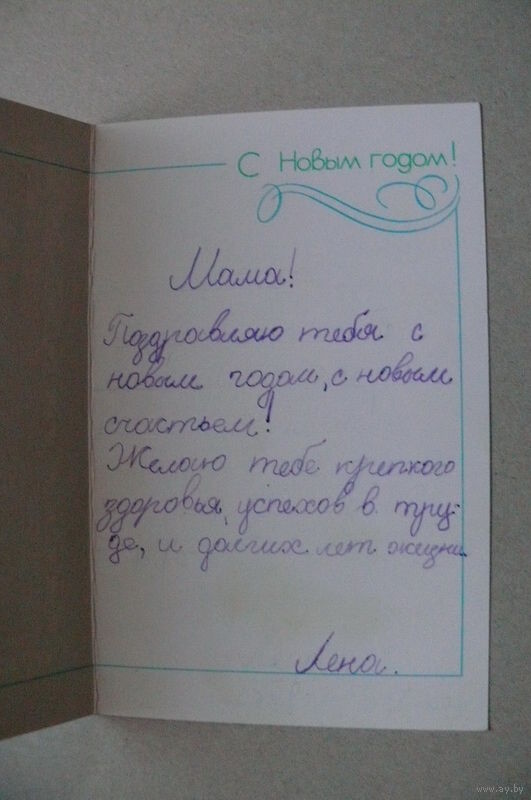 С Новым годом!
Мама!
Поздравляю тебя с
новым годом, с новым
счастьем!
Желаю тебе крепкого
здоровья, успехов в тру-
де, и долгих лет жизни
Лена.
www.ay.by